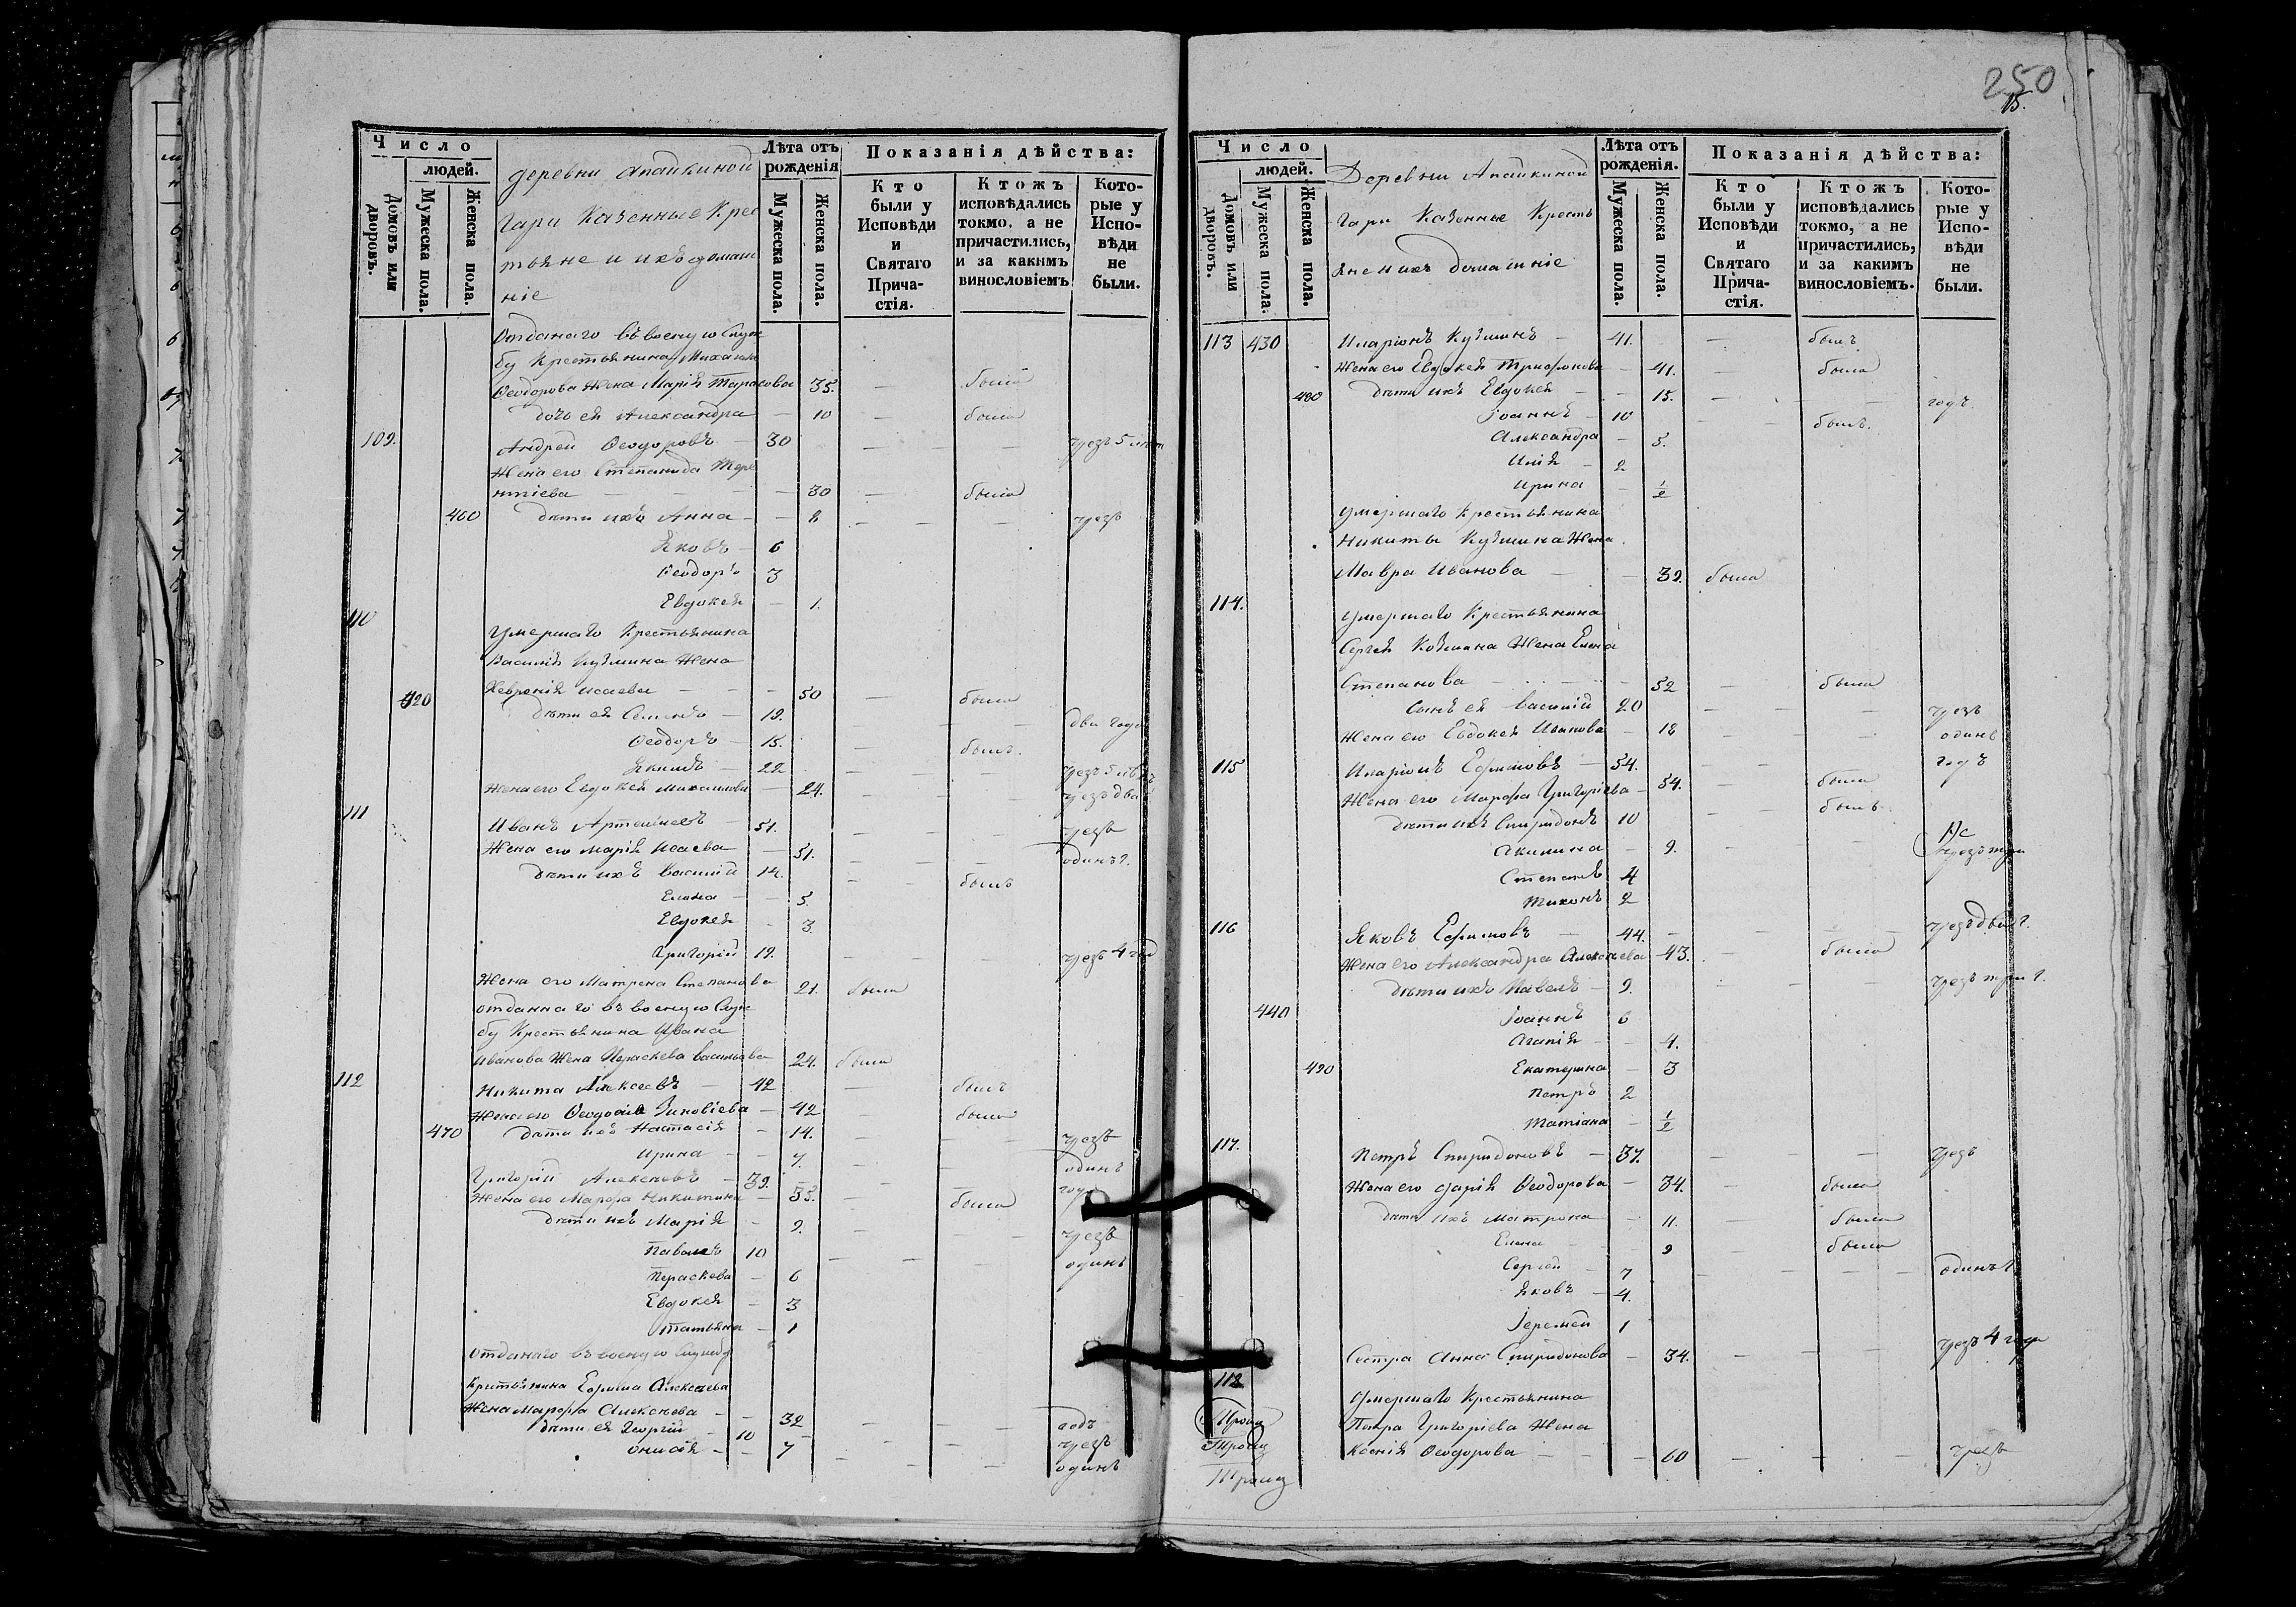 250
15.
Число
людей.
Домовъ или дворовъ.
Мужеска пола.
Женска пола.
деревни Апайкиной
Гари Казенные Крес
тьяне и ихъ домаш
ніе
Лѣта отъ рожденія
Мужеска пола.
Женска пола.
Показанія дѣйства:
Кто были у Исповѣди и Святаго Прича-стія.
Ктожъ исповѣдались токмо, а не причастились, и за какимъ винословіемъ
Кото-рые у Испо-вѣди не были.
Отданаго въ военую Служ
бу Крестьянина Михаила
Ѳеодорова Жена Марія Тарасова 35. — была
дочь ея Александра — 10 — была
109. Андрей Ѳеодоровъ — 30 — — чрезъ 5 лѣт
Жена его Степанида Тере
нтіева — — — 30 — была
460 дѣти ихъ Анна — — 8 — — — чрезъ
Яковъ — 6
Ѳеодоръ 3
Евдокея — 1.
110 Умершаго Крестьянина
Василія Кузмина Жена
Хевронія Исаева — — — 50 — была
420 дѣти ея Семенъ — 19. — — два года
Ѳеодоръ — 15. былъ.
Якимъ — 22 — — чрезъ 5 лѣтъ
Жена его Евдокея Михаилова — 24. — — — чрезъ два г.
111 Иванъ Артемьевъ — 51. — — — чрезъ
Жена его Марія Исаева — 51. — — — одинъ г.
дѣти ихъ Василій 14. — — былъ
Елена — — 5.
Евдокея — 3.
Григорій 19. — — — чрезъ 4 год
Жена его Матрена Степанова 21. была
отданнаго въ военую Служ
бу Крестьянина Ивана
Иванова Жена Параскева Васильева 24. была
112 Никита Алексеевъ — 42 — былъ
Жена его Ѳеодосія Зиновіева — 42 — была
470 дѣти ихъ Настасія — 14. — — — чрезъ
Ирина — — 7. — — одинъ
Григорій Алексѣевъ — 39. — — — годъ
Жена его Марфа Никитина — 35. — была
дѣти ихъ Марія — 9. — — — чрезъ
Павелъ 10 — — — одинъ
Параскева — 6
Евдокея — 3
Татьяна — 1
отданаго въ военую Службу
Крестьянина Ефима Алексѣева
Жена Марфа Алексѣева — — 32 — — — годъ
дѣти ея Георгій — 10 — — — чрезъ
Онисія — — 7 — — — одинъ
Число
людей.
Домовъ или дворовъ.
Мужеска пола.
Женска пола.
Деревни Апайкиной
Гари Казенные Кресть
яне и ихъ домашніе
Лѣта отъ рожденія.
Мужеска пола.
Женска пола.
Показанія дѣйства:
Кто были у Исповѣди и Святаго Прича-стія.
Ктожъ исповѣдались токмо, а не причастились, и за какимъ винословіемъ.
Кото-рые у Испо-вѣди не были.
113 430 Иларіонъ Кузминъ — 41. — былъ
Жена его Евдокея Трифонова — 41. — была
480 дѣти ихъ Евдокея — — 15. — — — годъ.
Іоаннъ — 10 — былъ.
Александра — 5.
Илія — 2
Ирина — 1/2
Умершаго Крестьянина
Никиты Кузмина Жена
Мавра Иванова — — 39. была
114. Умершаго Крестьянина
Сергея Козмина Жена Елена
Степанова — — — 52 — была
Сынъ ея Василій 20 — — — чрезъ
Жена его Евдокея Иванова — 18 — — — одинъ
115 Иларіонъ Ефимовъ — 54. — — — годъ
Жена его Марфа Григоріева — 54. — была
дѣти ихъ Спиридонъ 10 — былъ
Акилина — 9. — — — чрезъ три
Степанъ 4
Тихонъ 2
116 Яковъ Ефимовъ — 44. — — — чрезъ два г.
Жена его Александра Алексѣева — 43. — была
дѣти ихъ Павелъ — 9. — — — чрезъ три г.
440 Іоаннъ 6
Агапія — — 4.
490 Екатерина — 3
Петръ 2
Татіана — 1/2
117. Петръ Спиридоновъ — 37. — — — чрезъ
Жена его Дарія Ѳеодорова — 34. — была
дѣти ихъ Матрона — 11. — была
Елена — 9 — была
Сергей — 7 — — — одинъ г.
Яковъ — 4.
Іеремей 1
Сестра Анна Спиридонова — 34. — — — чрезъ 4 года
118 Умершаго Крестьянина
Петра Григоріева Жена
Ксенія Ѳеодорова — — 60 — — — чрезъ
Троиц
Троиц
Троиц